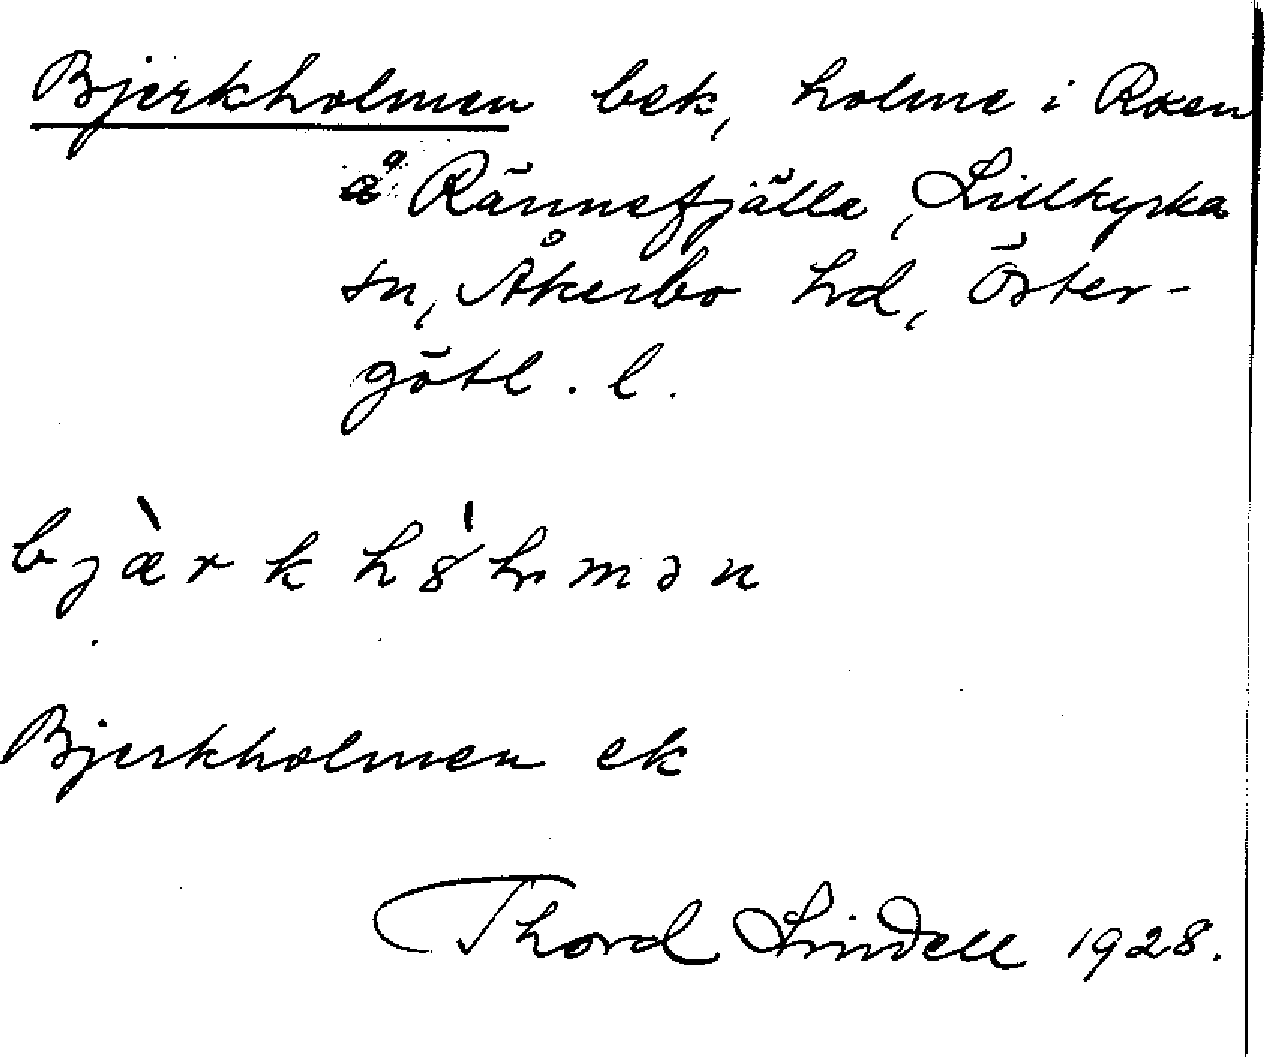 Bjerkholmen bek, holme i Roxen
å Rännefjälla, Lillkyrka
sn, Åkerbo hd, Öster-
götl. l.
Bjerkholmen ek
Thord Lindell 1928.